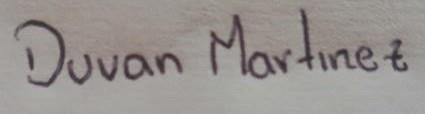 Duvan Martinez